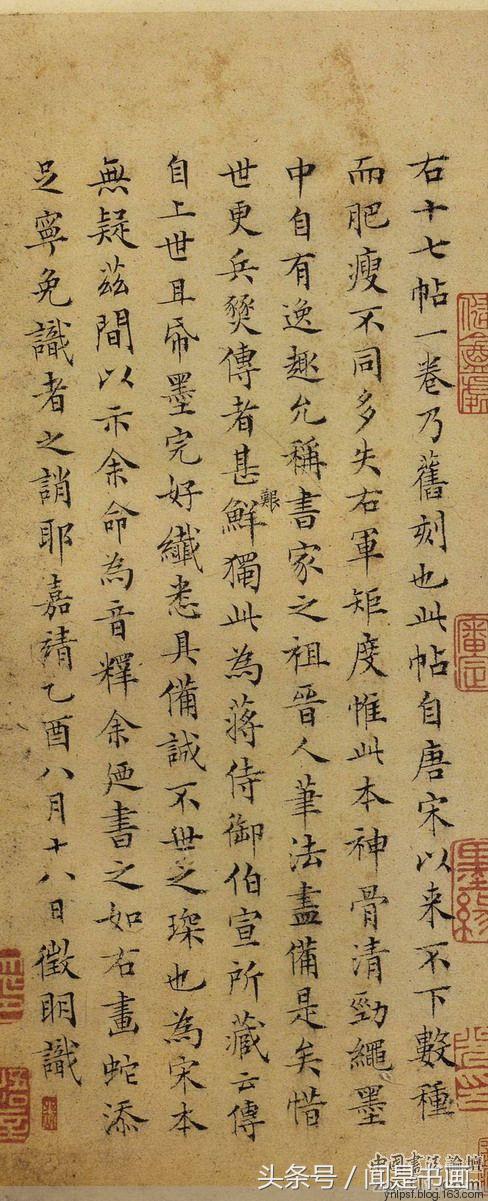 右十七帖一卷乃舊刻也此帖自唐宋以来不下數種
而肥瘦不同多失右軍矩度惟此本神骨清勁繩墨
中自有逸趣允稱書家之祖晉人筆法盡備是矣惜
世更兵燹傳者甚鮮獨此為蔣侍御伯宣所藏云傳
自上世且帋墨完好纖悉具備誠不世之琛也為宋本
無疑茲間以示余命為音釋余廼書之如右畫蛇添
足寧免識者之誚耶嘉靖乙酉八月十八日徵明識
墨緣
中国書法論壇
头条号 / 闻是书画
ynlpsf.blog.163.com